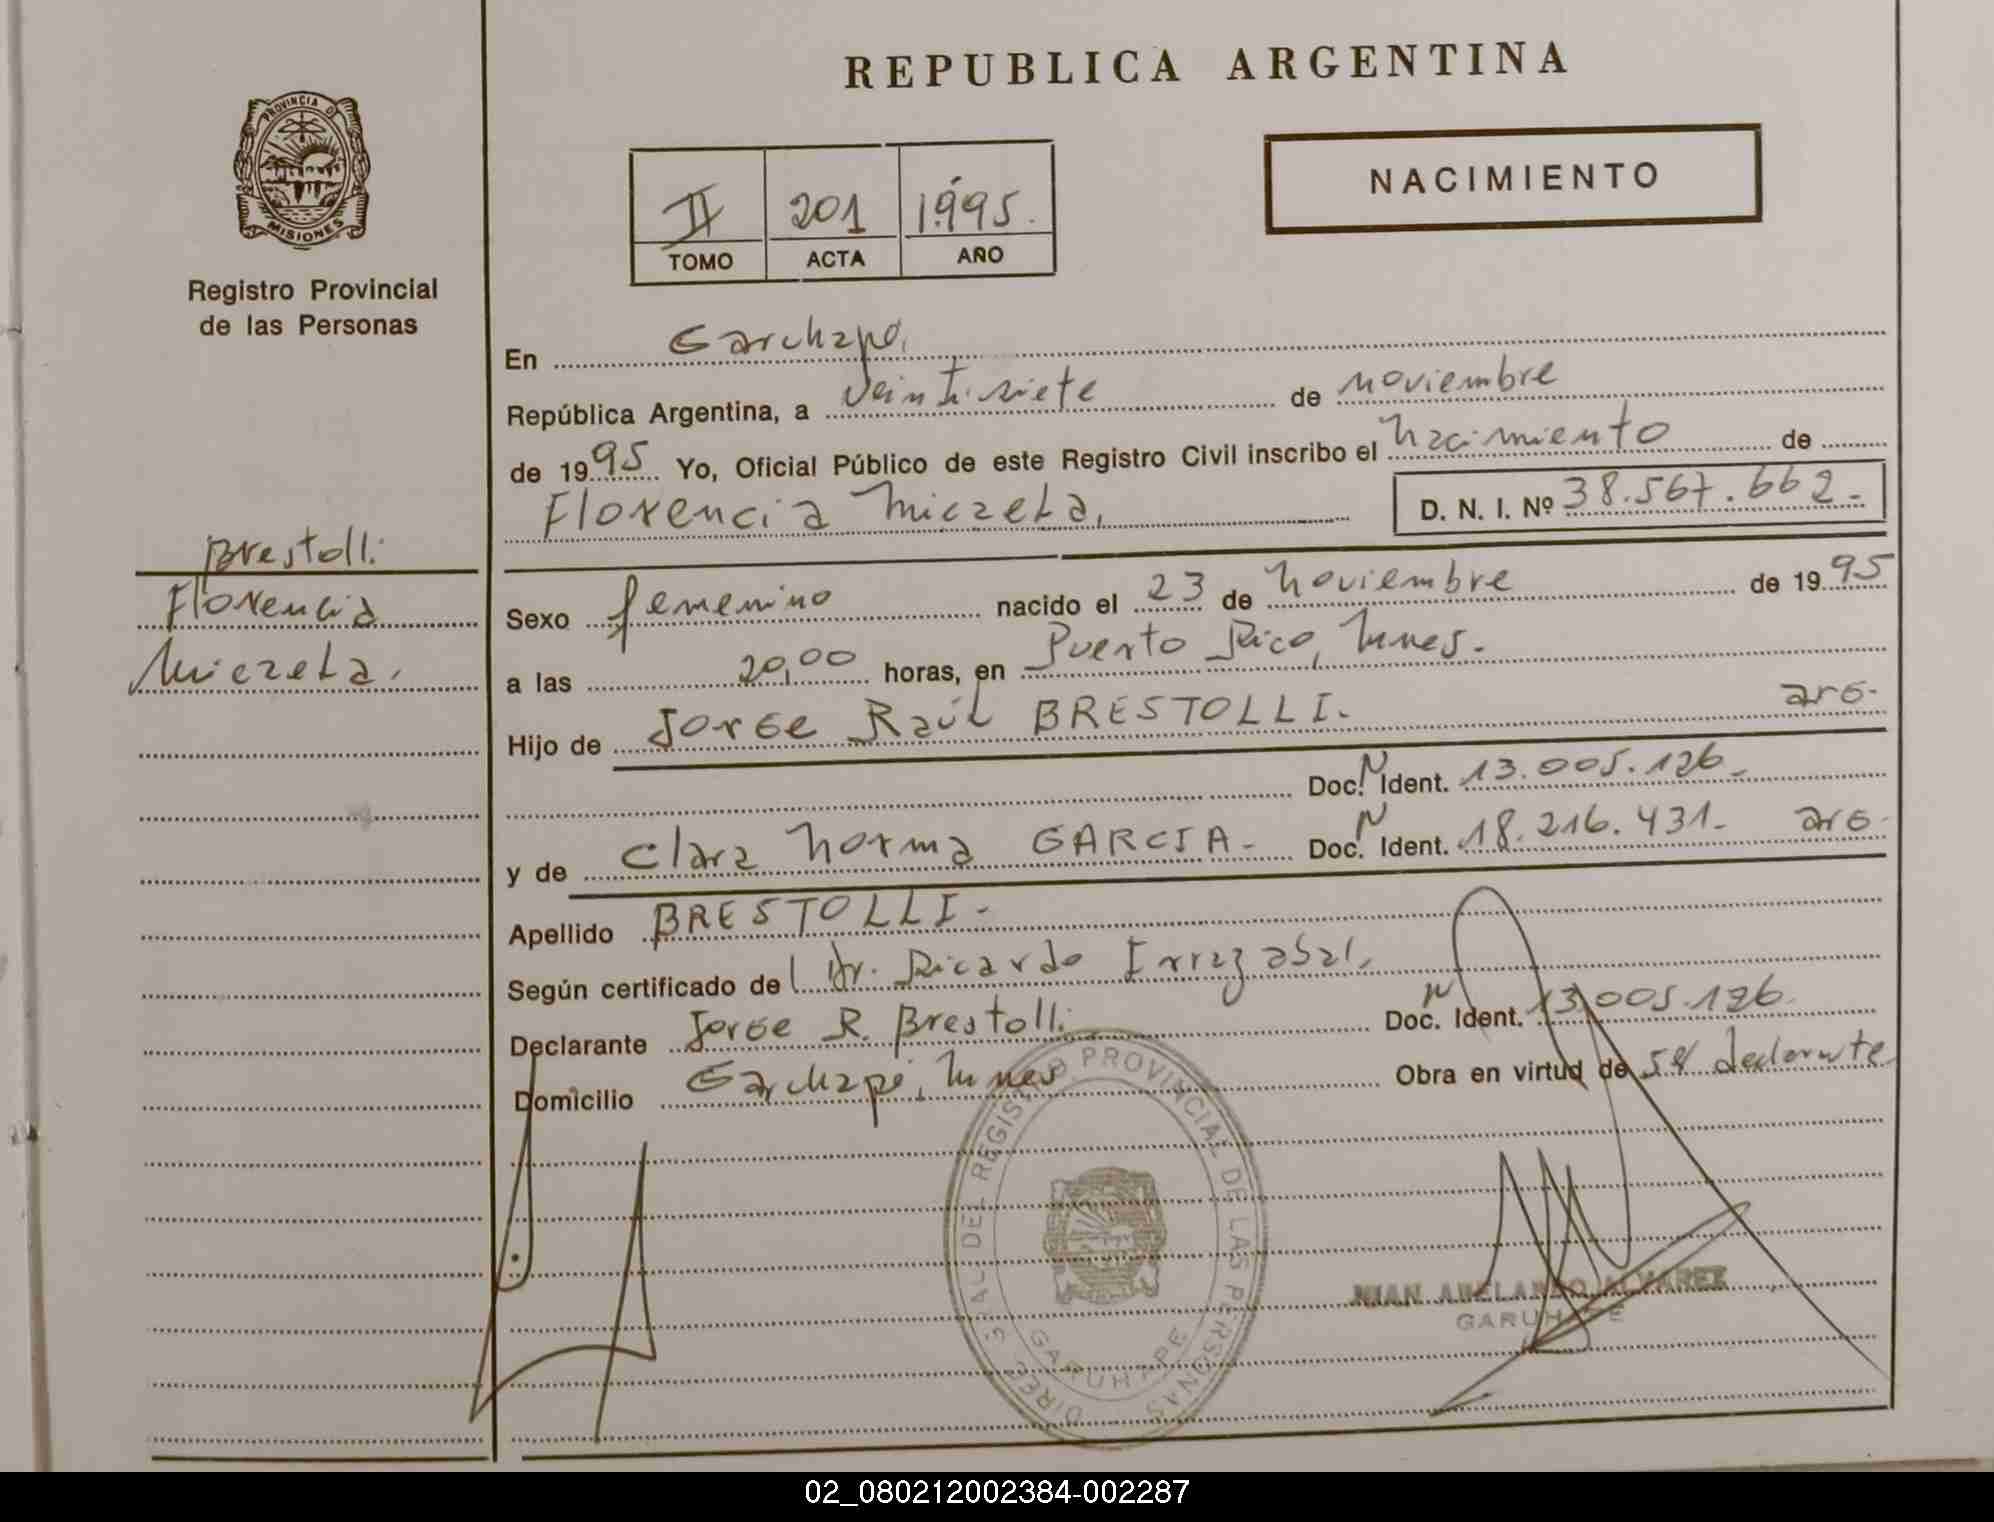 REPUBLICA ARGENTINA
PROVINCIA DE
MISIONES
Registro Provincial
de las Personas
II 201 1.995.
TOMO ACTA AÑO
NACIMIENTO
En Garuhapé,
República Argentina, a veintisiete de noviembre
de 1995 Yo, Oficial Público de este Registro Civil inscribo el nacimiento de
Florencia Micaela, D. N. I. Nº 38.567.662-
Brestolli
Florencia
Micaela.
Sexo femenino nacido el 23 de noviembre de 1995
a las 20,00 horas, en Puerto Rico, Mnes.
Hijo de Jorge Raúl BRESTOLLI- arg-
Doc. N Ident. 13.005.126-
y de Clara Norma GARCIA- Doc. N Ident. 18.216.431- arg-
Apellido BRESTOLLI-
Según certificado de Dr. Ricardo Irrazabal,
Declarante Jorge R. Brestolli Doc. N Ident. 13.005.126
Domicilio Garuhapé, Mnes Obra en virtud de ser declarante
REGISTRO PROVINCIAL DE LAS PERSONAS
GARUHAPE
JUAN ABELARDO ALVAREZ
GARUHAPE
02_080212002384-002287